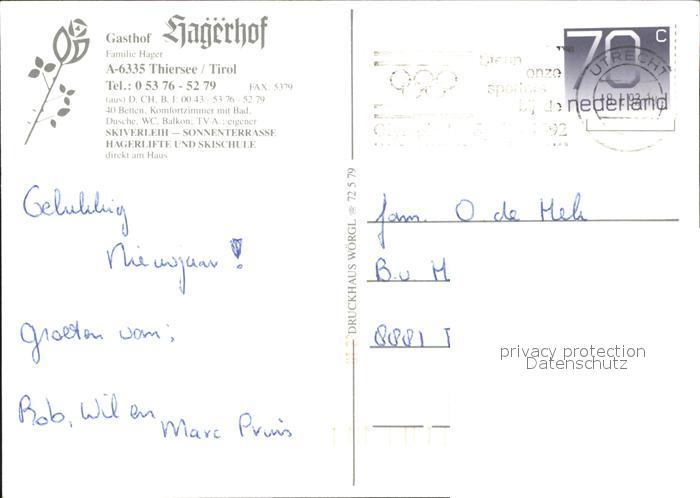 Gasthof Hagerhof
Familie Hager
A-6335 Thiersee / Tirol
Tel.: 0 53 76 - 52 79 FAX: 5379
(aus) D, CH, B, I: 00 43 - 53 76 - 52 79
40 Betten, Komfortzimmer mit Bad,
Dusche, WC, Balkon; TV-A.; eigener
SKIVERLEIH — SONNENTERRASSE
HAGERLIFTE UND SKISCHULE
direkt am Haus
70 c
nederland
UTRECHT
Steun
onze
bij de
92
DRUCKHAUS WÖRGL ☎ 72 5 79
Gelukkig
Nieuwjaar!
groeten van:
Rob, Wil en
Marc Prins
fam. O de Mek
B.v. M
8881
privacy protection
Datenschutz